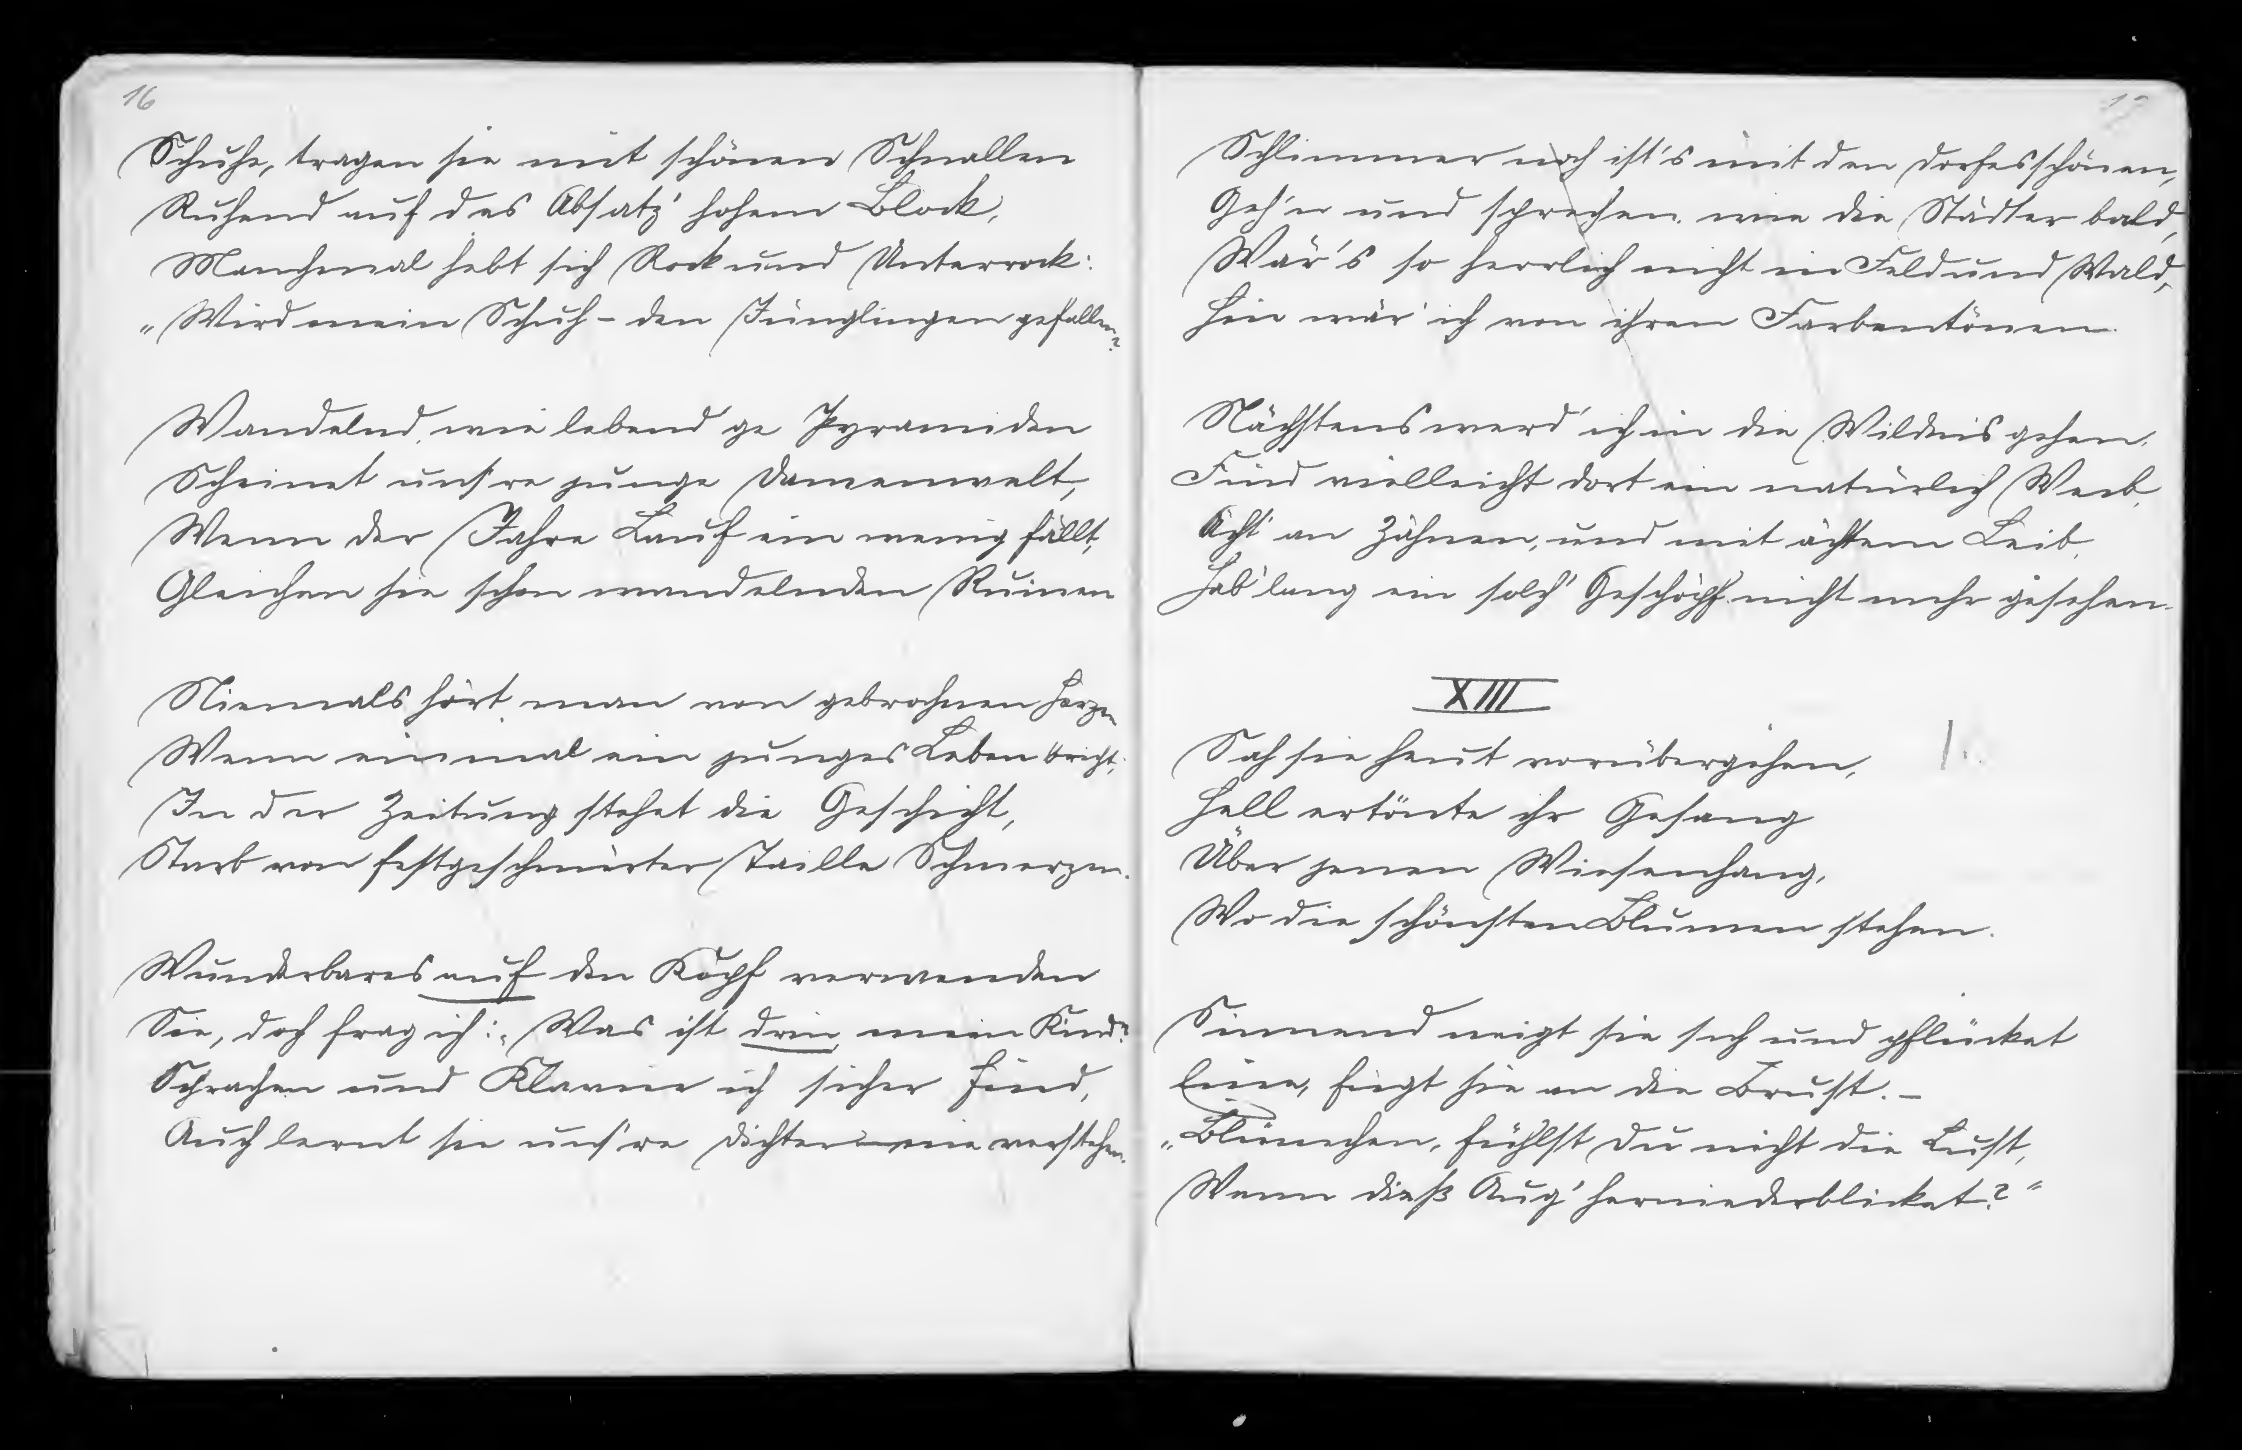 16
Schuhe, tragen sie mit schönen Schnallen
Ruhend auf des Absatz' hohem Block,
Manchmal hebt sich Rock und Unterrock:
„Wird mein Schuh – den Jünglingen gefallen?
Wandelnd, wie lebend'ge Pyramiden
Scheinet uns're junge Damenwelt,
Wenn der Jahre Lauf ein wenig fällt,
Gleichen sie schon wandelnden Ruinen
Niemals hört man von gebrochnen Herzen
Wenn einmal ein junges Leben bricht;
In der Zeitung stehet die Geschicht,
Starb von festgeschnürter Taille Schmerzen.
Wunderbares auf den Kopf verwenden
Sie, doch frag ich: „Was ist drin, mein Kind?
Sprachen und Klavier ich sicher find,
Auch lernt sie uns're Dichter nie verstehen.
17
Schlimmer noch ist's mit den Dorfesschönen,
Geh'n und sprechen wie die Städter bald,
Wär's so herrlich nicht in Feld und Wald,
Hin wär' ich von ihren Farbentönen.
Nächstens werd' ich in die Wildnis gehen.
Find vielleicht dort ein natürlich Weib,
Ächt an Zähnen, und mit ächtem Leib,
Hab' lang ein solch' Geschöpf nicht mehr gesehen.
XIII
Sah sie heut vorübergehen,
Hell ertönte ihr Gesang
Über jenen Wiesenhang,
Wo die schönsten Blumen stehen.
Sinnend neigt sie sich und pflücket
Eine, fügt sie an die Brust. –
„Blümchen, fühlst du nicht die Lust,
Wenn dieß Aug' herniederblicket?“